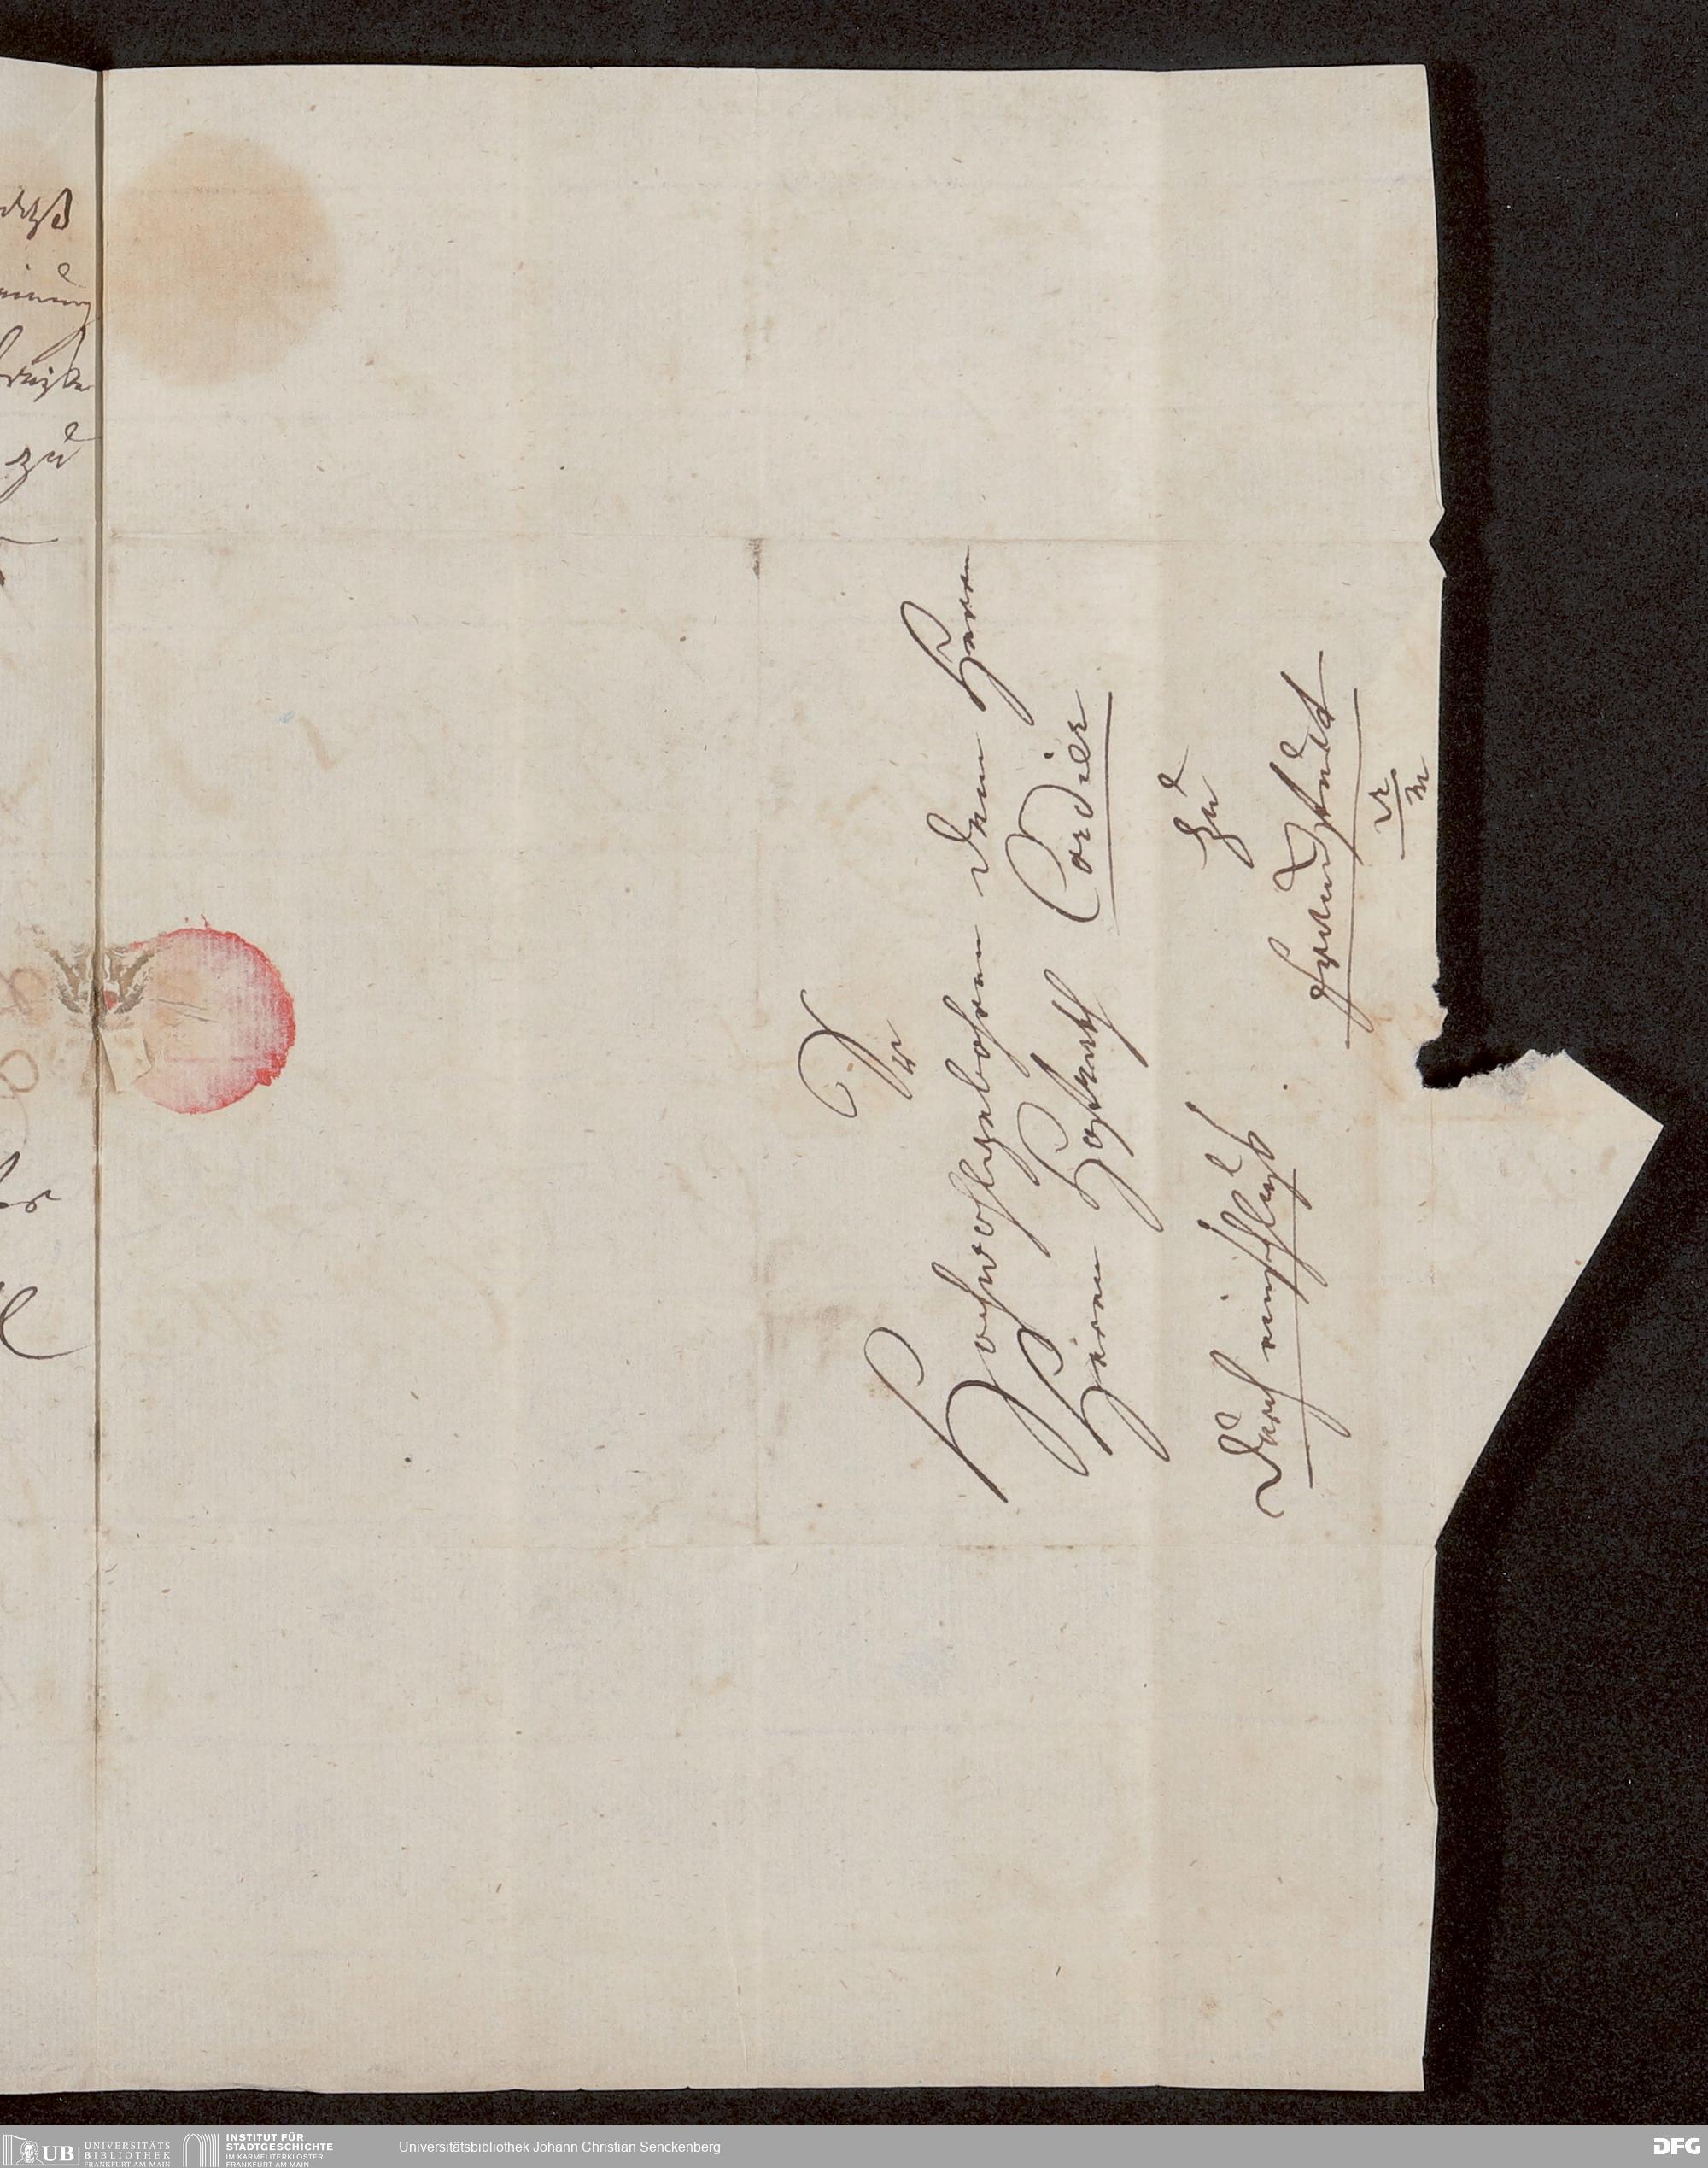 Sr
Hochwohlgebohren dem Herrn
Herrn Hofrath Cordier
zu
Durch einschluß
UB UNIVERSITÄTS
BIBLIOTHEK
FRANKFURT AM MAIN
INSTITUT FÜR
STADTGESCHICHTE
IM KARMELITERKLOSTER
FRANKFURT AM MAIN
Universitätsbibliothek Johann Christian Senckenberg
DFG
zu